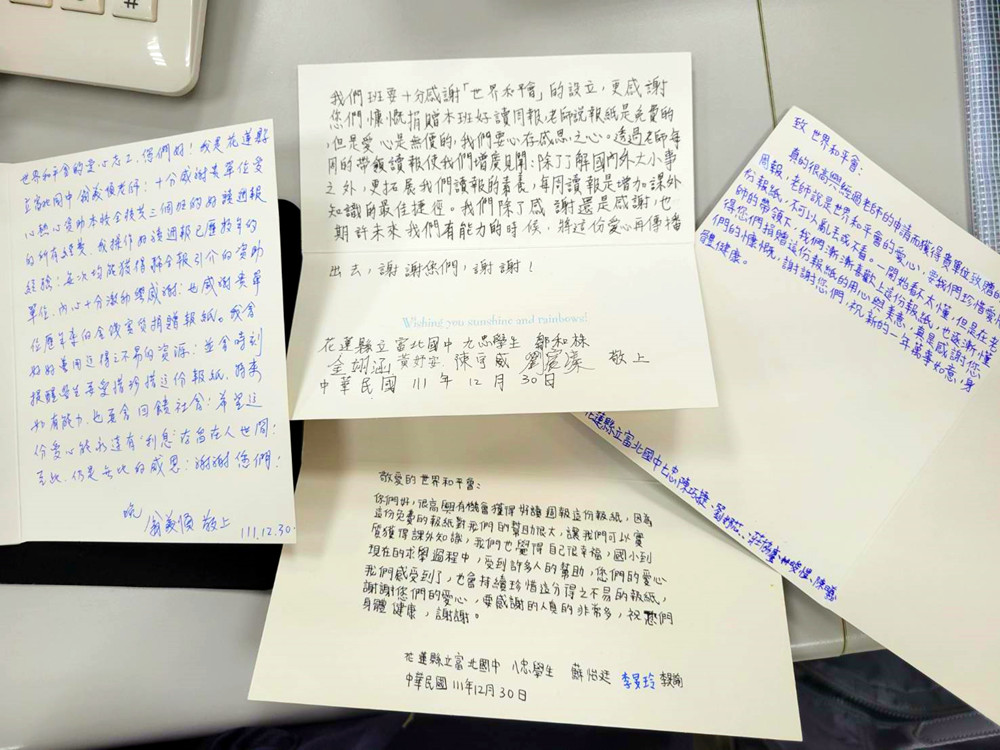 世界和平會的愛心志工,您們好!我是花蓮縣
立富北國中翁義順老師:十分感謝貴單位愛
心熱心資助本校全校共三個班的好讀週報
的所有經費。我操作好讀週報已歷數年的
經驗:每次均能獲得聯合報引介的資助
單位,內心十分激動與感謝:也感謝貴單
位歷年來的金錢實質捐贈報紙。我會
好好善用這得之不易的資源:並會時刻
提醒學生要愛惜珍惜這份報紙,將來
如有能力,也要會回饋社會:希望這
份愛心能永遠有「利息」存留在人世間!
至此,仍是無比的感恩:謝謝您們!
晚
翁義順 敬上 111.12.30.
我們班要十分感謝「世界和平會」的設立,更感謝
您們慷慨捐贈本班好讀周報,老師說報紙是免費的,
但是愛心是無價的,我們要心存感恩之心。透過老師每
周的帶領讀報使我們增廣見聞:除了了解國內外大小事
之外,更拓展我們讀報的素養,每周讀報是增加課外
知識的最佳捷徑。我們除了感謝還是感謝,也
期許未來我們有能力的時候,將這份愛心再傳播
出去,謝謝您們,謝謝!
Wishing you sunshine and rainbows!
花蓮縣立富北國中 九忠學生 鄭和林
全翊涵 黃妤安 陳宇威 劉家濠 敬上
中華民國 111 年 12 月 30日
致 世界和平會:
真的很高興經過老師的申請而獲得貴單位致贈的
周報,老師說是世界和平會的愛心,要我們珍惜愛
份報紙,不可以亂丟或不看。一開始看不太懂,但是在老
師的帶領下,我們漸漸喜歡上這份報紙,也逐漸懂
得您們捐贈這份報紙的用心與美意,真是感謝您
們的慷慨,謝謝您們,敬祝新的一年萬事如意,身
體健康。
花蓮縣立富北國中七忠:陳巧捷、
敬愛的世界和平會:
你們好,很高興有機會獲得好讀週報這份報紙,因為
這份免費的報紙對我們的幫助很大,讓我們可以實
質獲得課外知識,我們也覺得自己很幸福,國小到
現在的求學過程中,受到許多人的幫助,您們的愛心
我們感受到了,也會持續珍惜這分得之不易的報紙,
謝謝您們的愛心,要感謝的人真的非常多,祝您們
身體健康,謝謝。
花蓮縣立富北國中 八忠學生 蘇怡廷 李旻玲
中華民國 111年12月30日